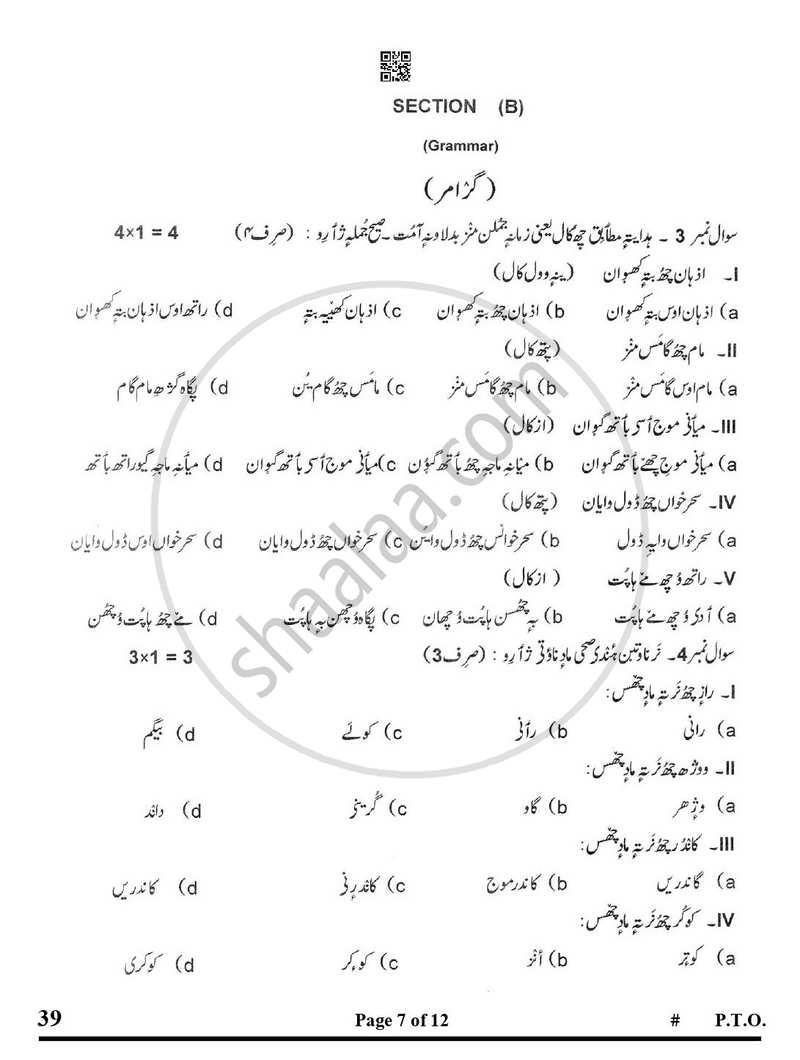 SECTION (B)
(Grammar)
(گرامر)
سوال نمبر 3 ۔ ہدایتہٕ مطابق چھ کال یعنی زمانہٕ جملن منز بدلاونہٕ آمُت ۔ صحیح جُملہٕ ژٲرِو : (صرف ۴) 4×1 = 4
I۔ اذہان چھُ بتہٕ کھیوان (ینہٕ وول کال)
a) اذہان اوس بتہٕ کھیوان b) اذہان چھُ بتہٕ کھیوان c) اذہان کھیٚیہِ بتہٕ d) راتھ اوس اذہان بتہٕ کھیوان
II۔ مام چھُ گامَس منٛز (پتھ کال)
a) مام اوس گامَس منٛز b) مام چھُ گامَس منٛز c) مامَس چھُ گام یُن d) پگاہ گژھِ مام گام
III۔ میٲنۍ موج ٲسۍ بٲتھ گیوان (از کال)
a) میٲنۍ موج چھےٚ بٲتھ گیوان b) میٲنہِ ماجہِ چھُ بٲتھ گیوُن c) میٲنۍ موج ٲسۍ بٲتھ گیوان d) میٲنہِ ماجہِ گیو راتھ بٲتھ
IV۔ سحر خواں چھُ ڈول وایان (پتھ کال)
a) سحر خواں وایہِ ڈول b) سحر خوانس چھُ ڈول وایُن c) سحر خواں چھُ ڈول وایان d) سحر خواں اوس ڈول وایان
V۔ راتھ وُچھ مےٚ ہاپُت (از کال)
a) ٲدۍ وُچھ مےٚ ہاپُت b) بہٕ چھُس ہاپُت وُچھان c) پگاہ وُچھن بہٕ ہاپُت d) مےٚ چھُ ہاپُت وُچھُن
سوال نمبر 4۔ نَر ناوتین ہُنٛدۍ صحی مادٕ ناوٕتۍ ژٲرِو : (صرف 3) 3×1 = 3
I۔ رازٕ چھُ نَر تہٕ مادٕ چھَس :
a) رانی b) رٲنۍ c) کوئے d) بیگم
II۔ ووژھ چھُ نَر تہٕ مادٕ چھَس :
a) وٕژھر b) گاو c) گُرینۍ d) داند
III۔ کانٛدُر چھُ نَر تہٕ مادٕ چھَس :
a) گاندریں b) کاندر موج c) کاندرٕنۍ d) کاندریں
IV۔ کوکُر چھُ نَر تہٕ مادٕ چھَس :
a) کوتر b) ٲنٛز c) کوٕکر d) کوکری
shaalaa.com
39
Page 7 of 12
# P.T.O.